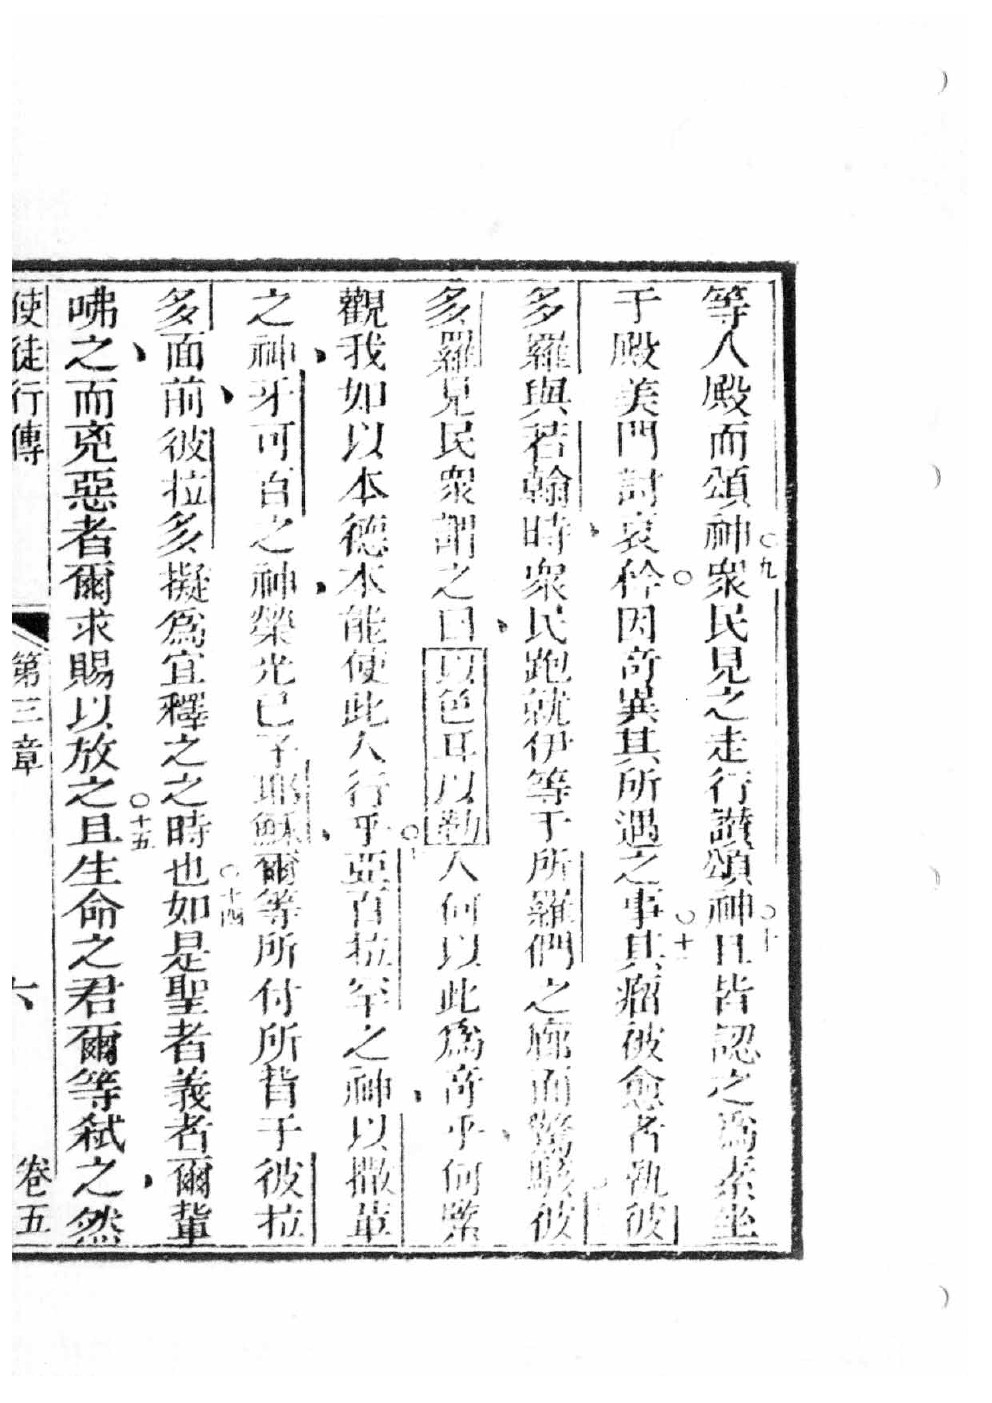 等入殿而頌神○九衆民見之走行讚頌神○十且皆認之爲素坐
于殿美門討哀矜○因奇異其所遇之事○十一其瘤被愈者執彼
多羅與若翰時衆民跑就伊等于所羅們之廊而驚駭彼
多羅見民衆謂之曰以色耳以勒人何以此爲奇乎何緊
觀我如以本德本能使此人行乎○亞百拉罕之神以撒革
之神牙可百之神榮光已子耶穌爾等所付所背于彼拉
多面前彼拉多擬爲宜釋之之時也○十四如是聖者義者爾輩
咈之而兇惡者爾求賜以放之○十五且生命之君爾等弑之然
使徒行傳 第三章 六 卷五